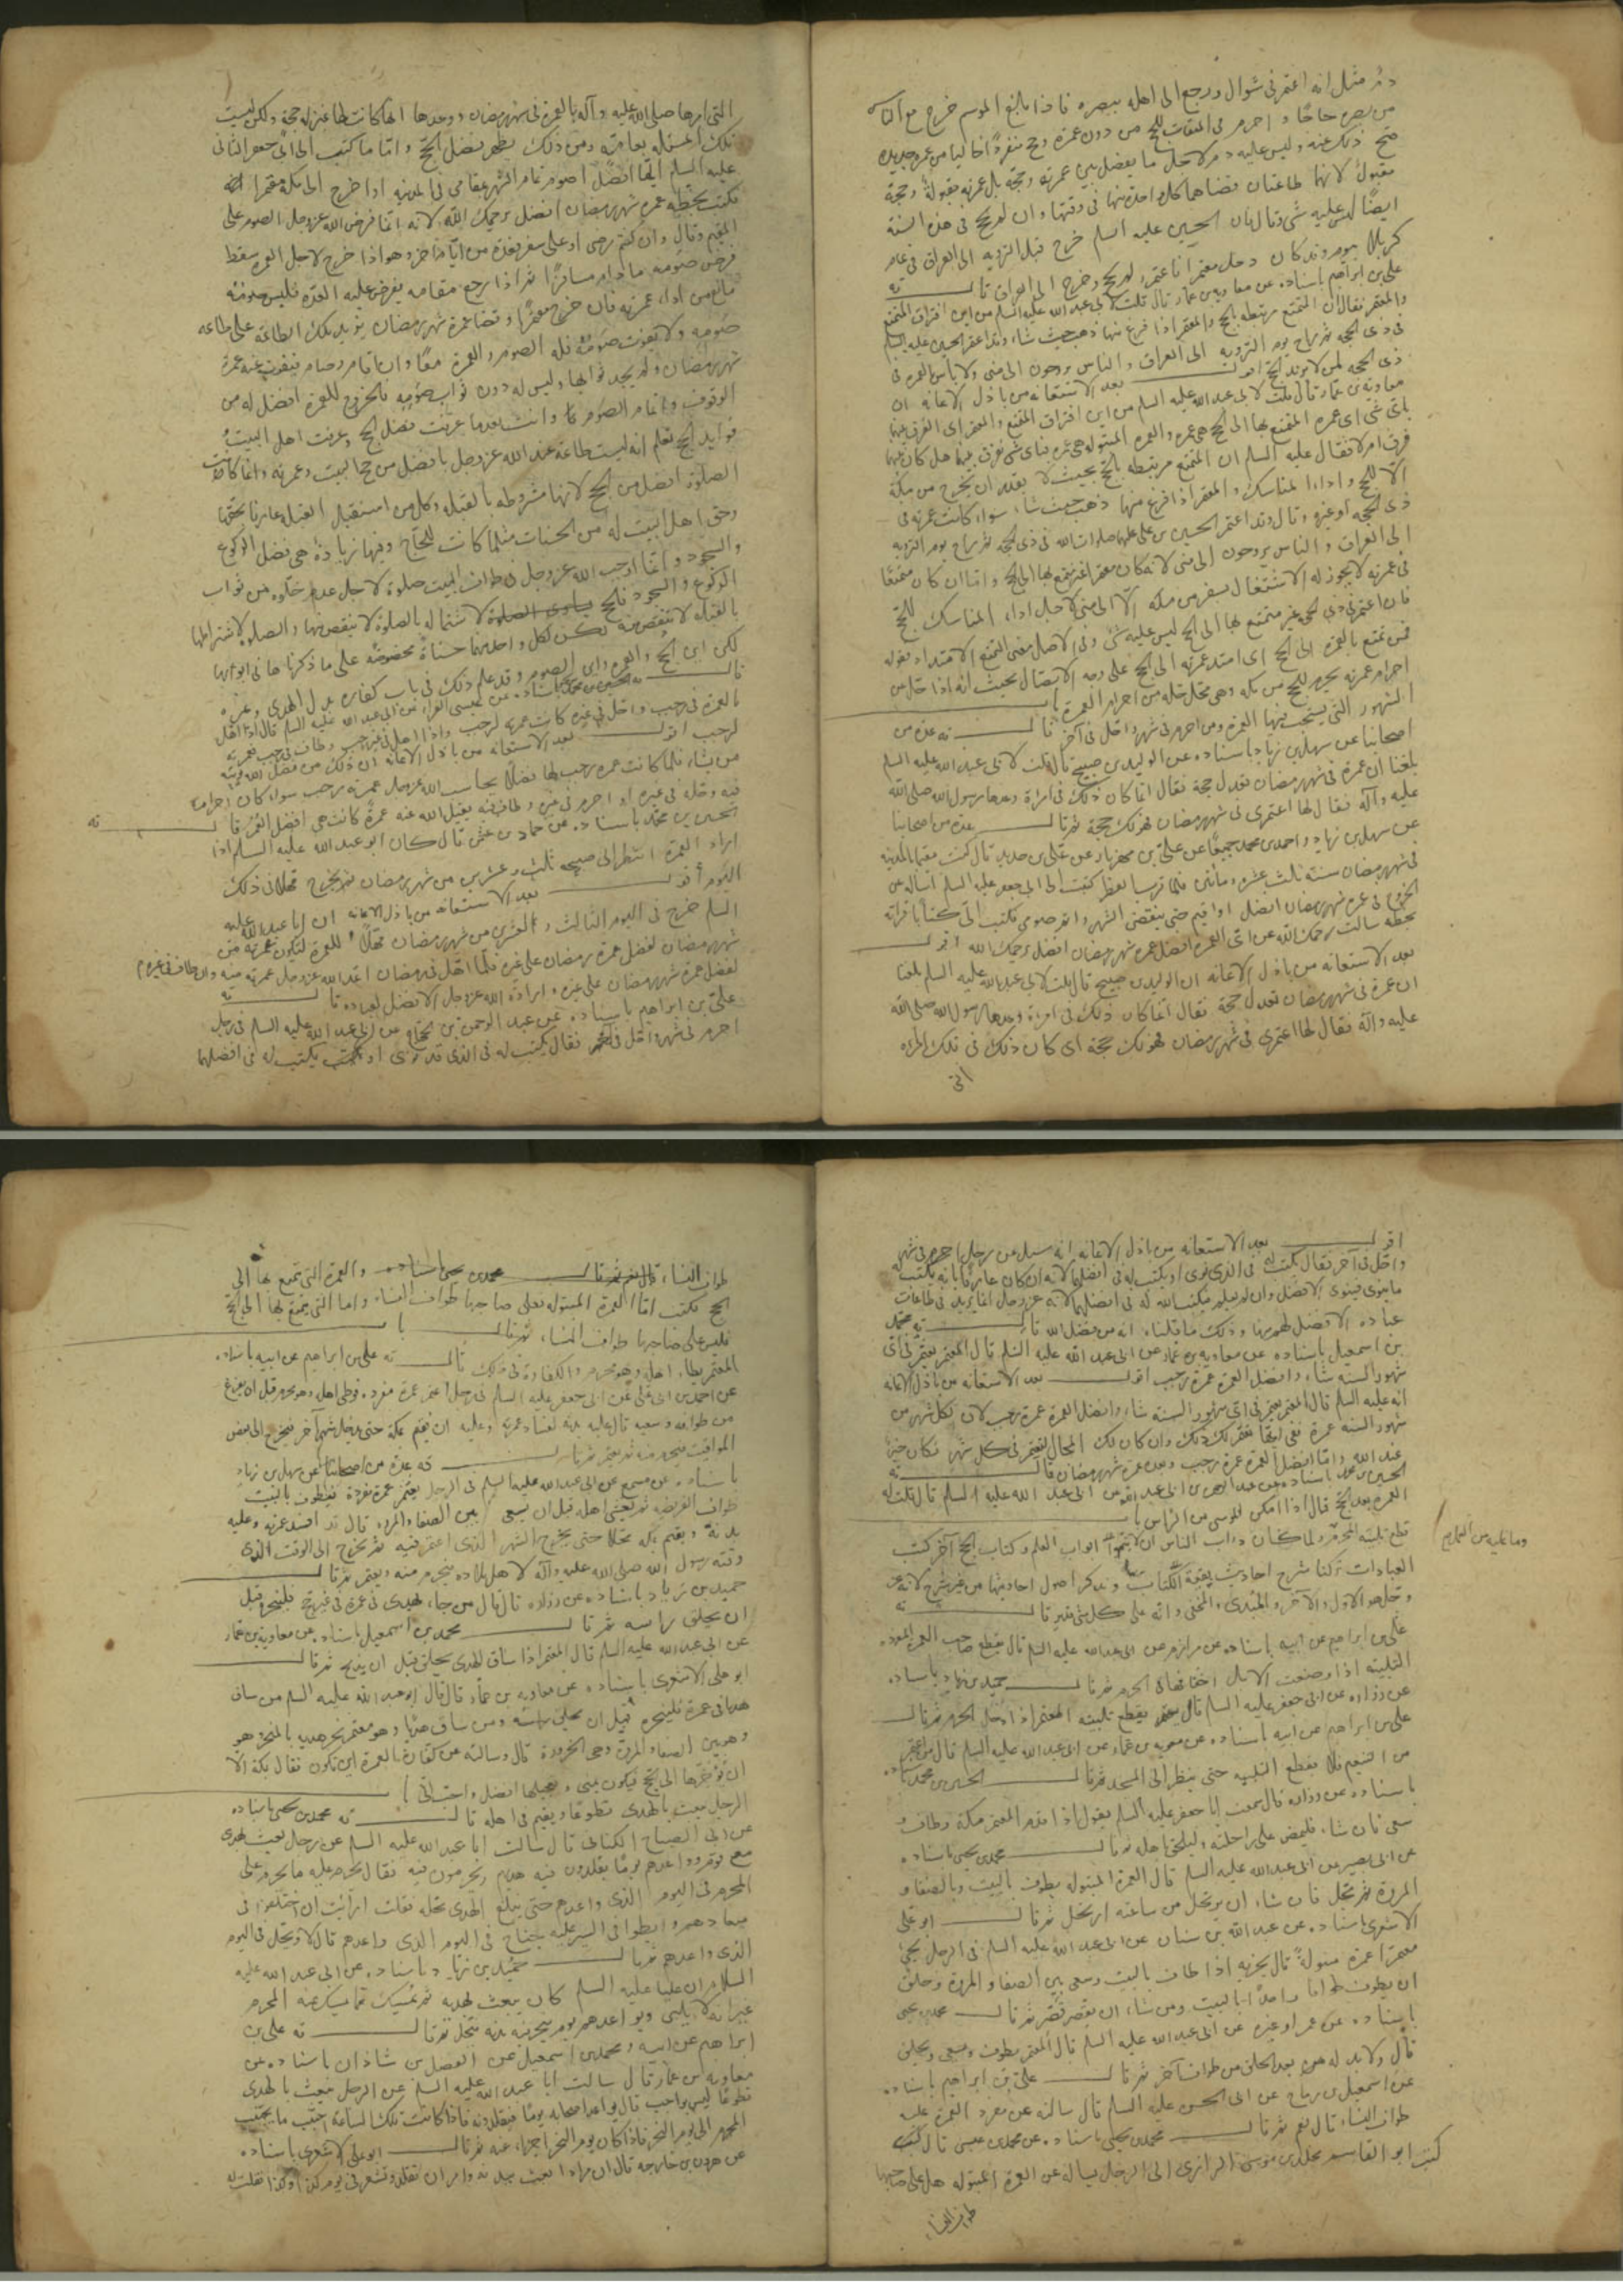 دم مثل انه اعتمر فى شوال ورجع الى اهله ببصره فاذا بلغ الموسم خرج مع الناس
من بصره حاجًا و احرم فى الميقات للحج من دون عمرة وحج منفردًا خاليا من عمرة جديدة
صح ذلك عنه وليس عليه دم لاجل ما يفصل بين عمرته وحجه بل عمرته مقبولة وحجة
مقبول لانهما طاعتان قضاهما كل واحدة منهما فى وقتها وان لم يحج فى هذه السنة
ايضًا ليس عليه شى وقال بان الحسين عليه السلم خرج قبل التروية الى العراق فى عام
كربلا يوم وقد كان دخل معتمرا فاعتمر ولم يحج وخرج الى العراق قال
على بن ابراهيم باسناده عن معاوية بن عمار قال قلت لابى عبد الله عليه السلم من اين افترق المتمتع
والمعتمر فقال ان المتمتع مرتبط بالحج والمعتمر اذا فرغ منها ذهب حيث شاء وقد اعتمر الحسين عليه السلم
فى ذى الحجه ثم راح يوم التروية الى العراق والناس يروحون الى منى ولا باس بالعمرة فى
ذى الحجه لمن لا يريد الحج اقول بعد الاستعانه من باذل الاعانه ان
معاوية بن عمار قال قلت لابى عبد الله عليه السلم من اين افترق المتمتع والمعتمر اى الفرق بينهما
باى شى اى عمرة المتمتع بها الى الحج هى عمره والعمره المبتوله هى عمره فباى شى تفرق بينهما هل كان بينهما
فرق ام لا فقال عليه السلم ان المتمتع مرتبطه بالحج بحيث لا يقدر ان يخرج من مكة
الا للحج واداء المناسك والمعتمر اذا فرغ منها ذهب حيث شاء سواء كانت عمرته فى
ذى الحجه او غيره وقال وقد اعتمر الحسين بن على عليهما صلوات الله فى ذى الحجه ثم راح يوم التروية
الى العراق والناس يروحون الى منى لانه كان معتمرا غير متمتع بها الى الحج واما ان كان متمتعًا
فى عمرته لا يجوز له الاشتغال بسفر من مكه الا الى منى لاجل اداء المناسك للحج
فان اعتمر فى ذى الحجه غير متمتع بها الى الحج ليس عليه شى وفى الاصل معنى التمتع الامتداد بقوله
فمن تمتع بالعمره الى الحج اى امتد عمرته الى الحج على وجه الاتصال بحيث انه اذا حل من
احرام عمرته يحرم للحج من مكه وهى محل حله من احرام العمره با
الشهور التى يستحب فيها العمرة ومن احرم فى شهر واحل فى آخر قال عدة من
اصحابنا عن سهل بن زياد باسناده عن الوليد بن صبيح قال قلت لابى عبد الله عليه السلم
بلغنا ان عمرة فى شهر رمضان تعدل حجة فقال انما كان ذلك فى امراة وعدها رسول الله صلى الله
عليه وآله فقال لها اعتمرى فى شهر رمضان فهو لك حجة ثم قال عدة من اصحابنا
عن سهل بن زياد واحمد بن محمد جميعًا عن على بن مهزيار عن على بن حديد قال كنت مقيما بالمدينه
فى شهر رمضان سنة ثلث عشر ومأتين فلما قرب الفطر كتبت الى ابى جعفر عليه السلم اسأله عن
الخروج فى عمره شهر رمضان افضل او اقيم حتى ينقضى الشهر واتم صومى فكتب الى كتابًا قرأته
بخطه سالت رحمك الله عن اى العمرة افضل عمرة شهر رمضان افضل يرحمك الله اقول
بعد الاستعانه من باذل الاعانه ان الوليد بن صبيح قال قلت لابى عبد الله عليه السلم بلغنا
ان عمرة فى شهر رمضان تعدل حجة فقال انما كان ذلك فى امراة وعدها رسول الله صلى الله
عليه وآله فقال لها اعتمرى فى شهر رمضان فهو لك حجة اى كان ذلك فى تلك المراه
التى
التى امرها صلى الله عليه وآله بالعمرة فى شهر رمضان ووعدها انها كانت لها بمنزلة حجة ولكن ليست
تلك المسئله بعامة ومن ذلك يظهر فضل الحج واما ما كتب الى ابى جعفر الثانى
عليه السلم ايما افضل اصوم تمام الشهر بمقامى فى المدينه او اخرج الى مكة معتمرا
فكتب بخطه عمره شهر رمضان افضل يرحمك الله لانه انما فرض الله عز وجل الصوم على
المقيم وقال وان كنتم مرضى او على سفر فعدة من ايام اخر وهو اذا خرج لاجل العمره سقط
فرض صومه ما دام مسافرًا ثم اذا رجع مقامه يفرض عليه العده فليس صومه
مانع من اداء عمرته فان خرج معتمرا وقضا عمرة شهر رمضان يؤيد تلك الطاعه على طاعه
صومه ولا يفوت صومه فله الصوم والعمرة معًا وان اقام وصام فيفوت عنه عمرة
شهر رمضان ولم يجد ثوابها وليس له دون ثواب صومه فالخروج للعمرة افضل له من
الوقوف واتمام الصوم كما وانت بعد ما عرفت فضل الحج وعرفت اهل البيت
فوايد الحج تعلم انه ليست طاعة عند الله عز وجل بافضل من حج البيت وعمرته وانما كانت
الصلوة افضل من الحج لانها مشروطه بالقبله وكل من استقبل القبله عارفا بحقها
وحق اهل البيت له من الحسنات مثل ما كانت للحاج وفيها زيادة هى فضل الركوع
والسجود وانما اوجب الله عز وجل فى طواف البيت صلوة لاجل عدم خلوه من ثواب
الركوع والسجود فالحج يساوى الصلوة لاشتماله بالصلوة لا ينقص منها والصلوة لاشتراطها
بالقبله لا تنقص منه لكن لكل واحد منهما حسنات مخصوصه على ما ذكرناها فى ابوابها
قال الحسين بن محمد باسناده عن عيسى الفراء عن ابى عبد الله عليه السلم قال اذا اهل
بالعمرة فى رجب واحل فى غيره كانت عمرته لرجب واذا اهل فى غير رجب وطاف فى رجب فعمرته
لرجب اقول بعد الاستعانه من باذل الاعانه ان ذلك من فضل الله يؤتيه
من يشاء فلما كانت عمره رجب لها فضلًا يحاسب الله عز وجل عمرته برجب سواء كان احرامه
فيه وحله فى غيره او احرم فى غيره وطاف فيه يقبل الله عنه عمرة كانت هى افضل العمر قال
الحسين بن محمد باسناده عن حماد بن عثمن قال كان ابو عبد الله عليه السلم اذا
اراد العمرة انتظر الى صبيحه ثلث وعشرين من شهر رمضان ثم يخرج مهلًا فى ذلك
اليوم اقول بعد الاستعانه من باذل الاعانه ان ابا عبد الله عليه
السلم خرج فى اليوم الثالث والعشرين من شهر رمضان مهلًا للعمرة لتكون عمرته من
شهر رمضان لفضل عمرة رمضان على غيره فلما اهل فى رمضان اعتد الله عز وجل عمرته منه وان طاف فى غيره
لفضل عمرة شهر رمضان على غيره وارادة الله عز وجل الافضل لعباده قال
على بن ابراهيم باسناده عن عبد الرحمن بن الحجاج عن ابى عبد الله عليه السلم فى رجل
احرم فى شهر واحل فى آخر فقال يكتب له فى الذى قد نوى او يكتب له فى افضلهما
اقول بعد الاستعانه من باذل الاعانه انه سئل عن رجل احرم فى شهر
واحل فى آخر فقال يكتب له فى الذى نوى او يكتب له فى افضلهما لانه ان كان عارفا بانه يكتب له
ما ينوى فينوى الافضل وان لم يعلم يكتب الله له فى افضلهما لانه عز وجل انما يريد فى طاعات
عباده الافضل لهم منها وذلك ما قلناه انه من فضل الله قال محمد
بن اسمعيل باسناده عن معاوية بن عمار عن ابى عبد الله عليه السلم قال المعتمر يعتمر فى اى
شهور السنه شاء وافضل العمرة عمرة رجب اقول بعد الاستعانه من باذل الاعانه
انه عليه السلم قال المعتمر يعتمر فى اى شهور السنه شاء وافضل العمرة عمرة رجب لان لكل شهر من
شهور السنه عمرة ففى ايها تعتمر لك ذلك وان كان لك المجال لتعتمر فى كل شهر فكان خيرًا
عند الله واما افضل العمرة عمرة رجب وبعده عمرة شهر رمضان قال
الحسين بن محمد باسناده عن عبد الرحمن بن ابى عبد الله عن ابى عبد الله عليه السلم قال قلت له
العمره بعد الحج قال اذا امكن الموسى من الراس با
قطع تلبيه المحرم ولما كان داب الناس ان لا يتموا ابواب العلم وكتاب الحج آخر كتب
وما عليه من العمل
العبادات تركنا شرح احاديث بقية الكتاب ونذكر اصول احاديثها من غير شرح لانه عز
وجل هو الاول والآخر والمبتدى والمخفى وانه على كل شى قدير قال
على بن ابراهيم عن ابيه باسناده عن مرازم عن ابى عبد الله عليه السلم قال يقطع صاحب العمرة المفرده
التلبية اذا وضعت الابل اخفافها فى الحرم ثم قال حميد بن زياد باسناده
عن زراره عن ابى جعفر عليه السلم قال يقطع تلبيه المعتمر اذا دخل الحرم ثم قال
على بن ابراهيم عن ابيه باسناده عن معوية بن عمار عن ابى عبد الله عليه السلم قال من اعتمر
من التنعيم فلا يقطع التلبيه حتى ينظر الى المسجد ثم قال الحسين بن محمد
باسناده عن زراره قال سمعت ابا جعفر عليه السلم يقول اذا قدم المعتمر مكة وطاف و
سعى فان شاء فليمض على راحلته وليلحق باهله ثم قال محمد بن يحيى باسناده
عن ابى بصير عن ابى عبد الله عليه السلم قال العمرة المبتوله يطوف بالبيت وبالصفا و
المروة ثم يحل فان شاء ان يرتحل من ساعته ارتحل ثم قال ابو على
الاشعرى باسناده عن عبد الله بن سنان عن ابى عبد الله عليه السلم فى الرجل يجئ
معتمرا عمرة مبتولة قال يجزيه اذا طاف بالبيت وسعى بين الصفا والمروة وحلق
ان يطوف طوافا واحدًا بالبيت ومن شاء ان يقصر قصر ثم قال محمد بن يحيى
باسناده عن عمر او غيره عن ابى عبد الله عليه السلم قال المعتمر يطوف ويسعى ويحلق
قال ولا بد له من بعد الحلق من طواف آخر ثم قال على بن ابراهيم باسناده
عن اسمعيل بن رباح عن ابى الحسن عليه السلم قال سالته عن مفرد العمرة عليه
طواف النساء قال نعم ثم قال محمد بن يحيى باسناده عن محمد بن عيسى قال كتب
كتب ابو القاسم مخلد بن موسى الرازى الى الرجل يساله عن العمرة المبتوله هل على صاحبها
طواف النساء
طواف النساء ثم قال محمد بن يحيى باسناده والعمرة التى يتمتع بها الى
الحج فكتب اما العمرة المبتوله فعلى صاحبها طواف النساء واما التى يتمتع بها الى الحج
فليس على صاحبها طواف النساء ثم قال با
المعتمر يطأ اهله وهو محرم والكفارة فى ذلك قال على بن ابراهيم عن ابيه باسناده
عن احمد بن ابى على عن ابى جعفر عليه السلم فى رجل اعتمر عمرة مفرده فوطى اهله وهو محرم قبل ان يفرغ
من طوافه وسعيه قال عليه بدنه لفساد عمرته وعليه ان يقيم بمكة حتى يدخل شهر آخر فيخرج الى بعض
المواقيت فيحرم منه ثم يعتمر ثم قال عدة من اصحابنا عن سهل بن زياد
باسناده عن مسمع عن ابى عبد الله عليه السلم فى الرجل يعتمر عمرة مفردة فيطوف بالبيت
طواف الفريضه ثم يغشى اهله قبل ان يسعى بين الصفا والمروه قال قد افسد عمرته وعليه
بدنة ويقيم بمكه محلا حتى يخرج الشهر الذى اعتمر فيه ثم يخرج الى الوقت الذى
وقته رسول الله صلى الله عليه وآله لاهل بلاده فيحرم منه ويعتمر ثم قال
حميد بن زياد باسناده عن زراره قال قال من جاء بهدى فى عمرة فى غير حج فلينحر قبل
ان يحلق راسه ثم قال محمد بن اسمعيل باسناده عن معاوية بن عمار
عن ابى عبد الله عليه السلم قال المعتمر اذا ساق الهدى يحلق قبل ان يذبح ثم قال
ابو على الاشعرى باسناده عن معاوية بن عمار قال قال ابو عبد الله عليه السلم من ساق
هديا فى عمرة فلينحره قبل ان يحلق راسه ومن ساق هديا وهو معتمر نحر هديه بالمنحر وهو
وهو بين الصفا والمروة وهى الحزورة قال وسالته عن كفارة العمرة اين تكون فقال بمكة الا
ان يؤخرها الى الحج فيكون بمنى وتعجيلها افضل واحب الى با
الرجل يبعث بالهدى تطوعًا ويقيم فى اهله قال محمد بن يحيى باسناده
عن ابى الصباح الكنانى قال سالت ابا عبد الله عليه السلم عن رجل بعث بهدى
مع قوم وواعدهم يومًا يقلدون فيه هديهم ويحرمون فيه فقال يحرم عليه ما يحرم على
المحرم فى اليوم الذى واعدهم حتى يبلغ الهدى محله فقلت ارايت ان اختلفوا فى
ميعادهم وابطوا فى السير عليه جناح فى اليوم الذى واعدهم قال لا ويحل فى اليوم
الذى واعدهم ثم قال حميد بن زياد باسناده عن ابى عبد الله عليه
السلام ان عليا عليه السلم كان يبعث بهديه ثم يمسك عما يمسك عنه المحرم
غير انه لا يلبى ويواعدهم يوم ينحر فيه بدنه فيحل ثم قال على بن
ابراهيم عن ابيه ومحمد بن اسمعيل عن الفضل بن شاذان باسناده عن
معاويه بن عمار قال سالت ابا عبد الله عليه السلم عن الرجل يبعث بالهدى
تطوعًا ليس بواجب قال يواعد اصحابه يومًا فيقلدونه فاذا كانت تلك الساعة اجتنب ما يجتنب
المحرم الى يوم النحر فاذا كان يوم النحر اجزاء عنه ثم قال ابو على الاشعرى باسناده
عن هرون بن خارجه قال ان مرادا بعث ببدنه وامر ان تقلد وتشعر فى يوم كذا وكذا فقلت له